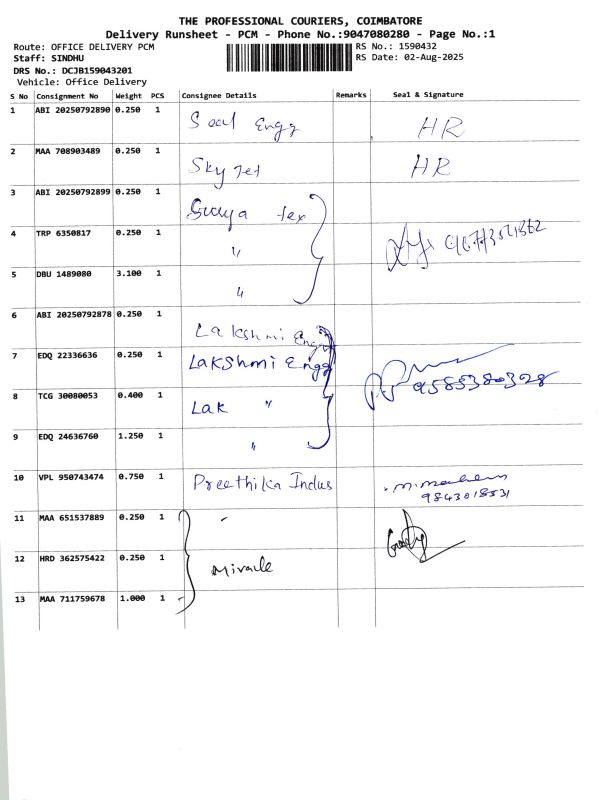 THE PROFESSIONAL COURIERS, COIMBATORE
Delivery Runsheet - PCM - Phone No.:9047080280 - Page No.:1
Route: OFFICE DELIVERY PCM
Staff: SINDHU
DRS No.: DCJB159043201
Vehicle: Office Delivery
RS No.: 1590432
RS Date: 02-Aug-2025
S No Consignment No Weight PCS Consignee Details Remarks Seal & Signature
1 ABI 20250792890 0.250 1 Seal Engg HR
2 MAA 708903489 0.250 1 Sky Jet HR
3 ABI 20250792899 0.250 1 tex
4 TRP 6350817 0.250 1 "
5 DBU 1489080 3.100 1 "
6 ABI 20250792878 0.250 1 Lakshmi Engg
7 EDQ 22336636 0.250 1 Lakshmi Engg
8 TCG 30080053 0.400 1 Lak " 9585380328
9 EDQ 24636760 1.250 1 "
10 VPL 950743474 0.750 1 Preethika Indus
9843018531
11 MAA 651537889 0.250 1 "
12 HRD 362575422 0.250 1 Miracle
13 MAA 711759678 1.000 1